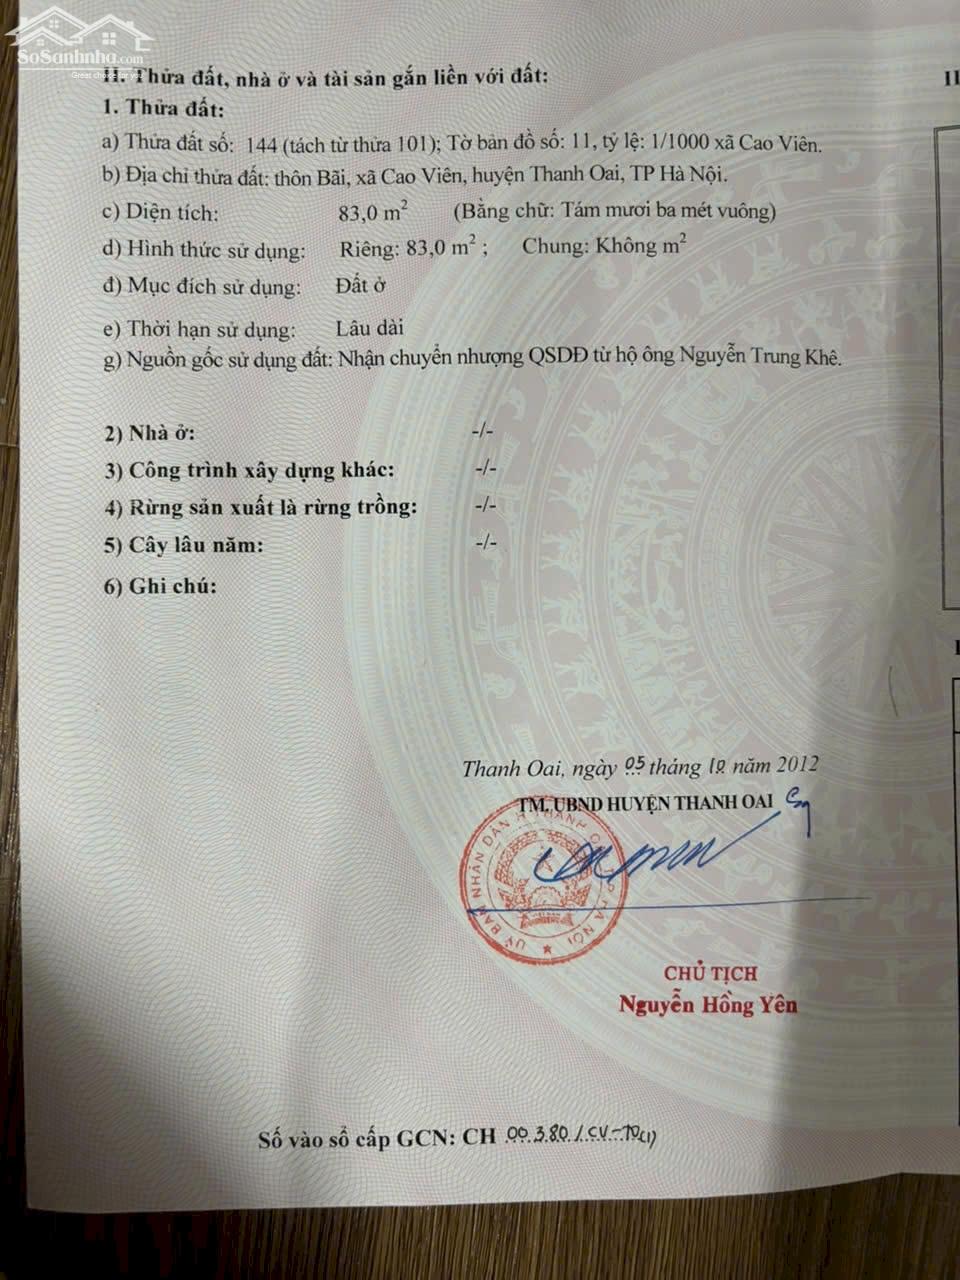 SoSanhnha.com
Great choice for you
II. Thửa đất, nhà ở và tài sản gắn liền với đất:
1. Thửa đất:
a) Thửa đất số: 144 (tách từ thửa 101); Tờ bản đồ số: 11, tỷ lệ: 1/1000 xã Cao Viên.
b) Địa chỉ thửa đất: thôn Bãi, xã Cao Viên, huyện Thanh Oai, TP Hà Nội.
c) Diện tích: 83,0 m² (Bằng chữ: Tám mươi ba mét vuông)
d) Hình thức sử dụng: Riêng: 83,0 m² ; Chung: Không m²
đ) Mục đích sử dụng: Đất ở
e) Thời hạn sử dụng: Lâu dài
g) Nguồn gốc sử dụng đất: Nhận chuyển nhượng QSDĐ từ hộ ông Nguyễn Trung Khê.
2) Nhà ở: -/-
3) Công trình xây dựng khác: -/-
4) Rừng sản xuất là rừng trồng: -/-
5) Cây lâu năm: -/-
6) Ghi chú:
Thanh Oai, ngày 05 tháng 10 năm 2012
TM. UBND HUYỆN THANH OAI
CHỦ TỊCH
Nguyễn Hồng Yên
Số vào sổ cấp GCN: CH 00380/CV-